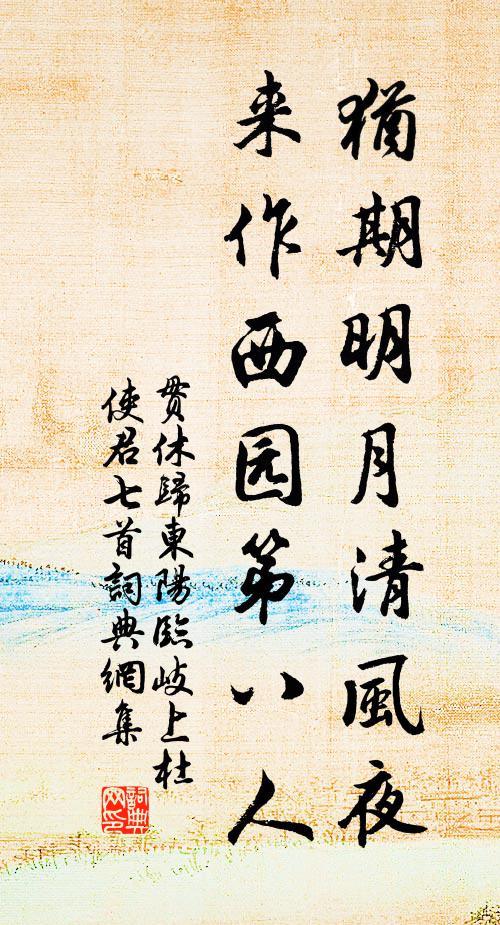 猶期明月清風夜
来作西园第八人
貫休歸東陽臨岐上杜
使君七首詞典網集
詞典
网印